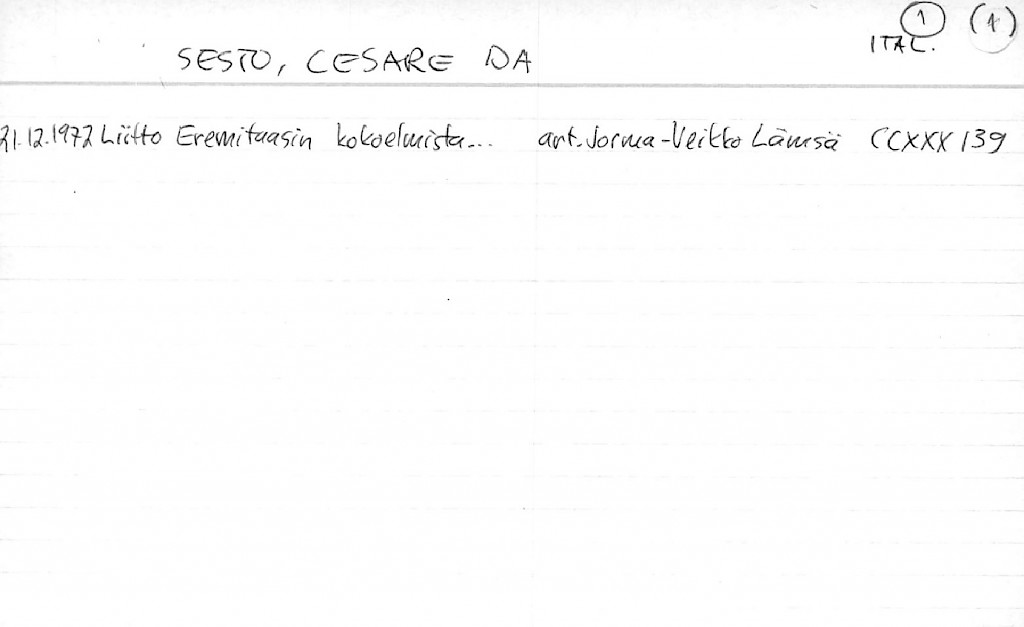 1 (1)
ITAL.
SESTO, CESARE DA
21.12.1972 Liitto Eremitaasin kokoelmista... art. Jorma-Veikko Lämsä CCXXX 139